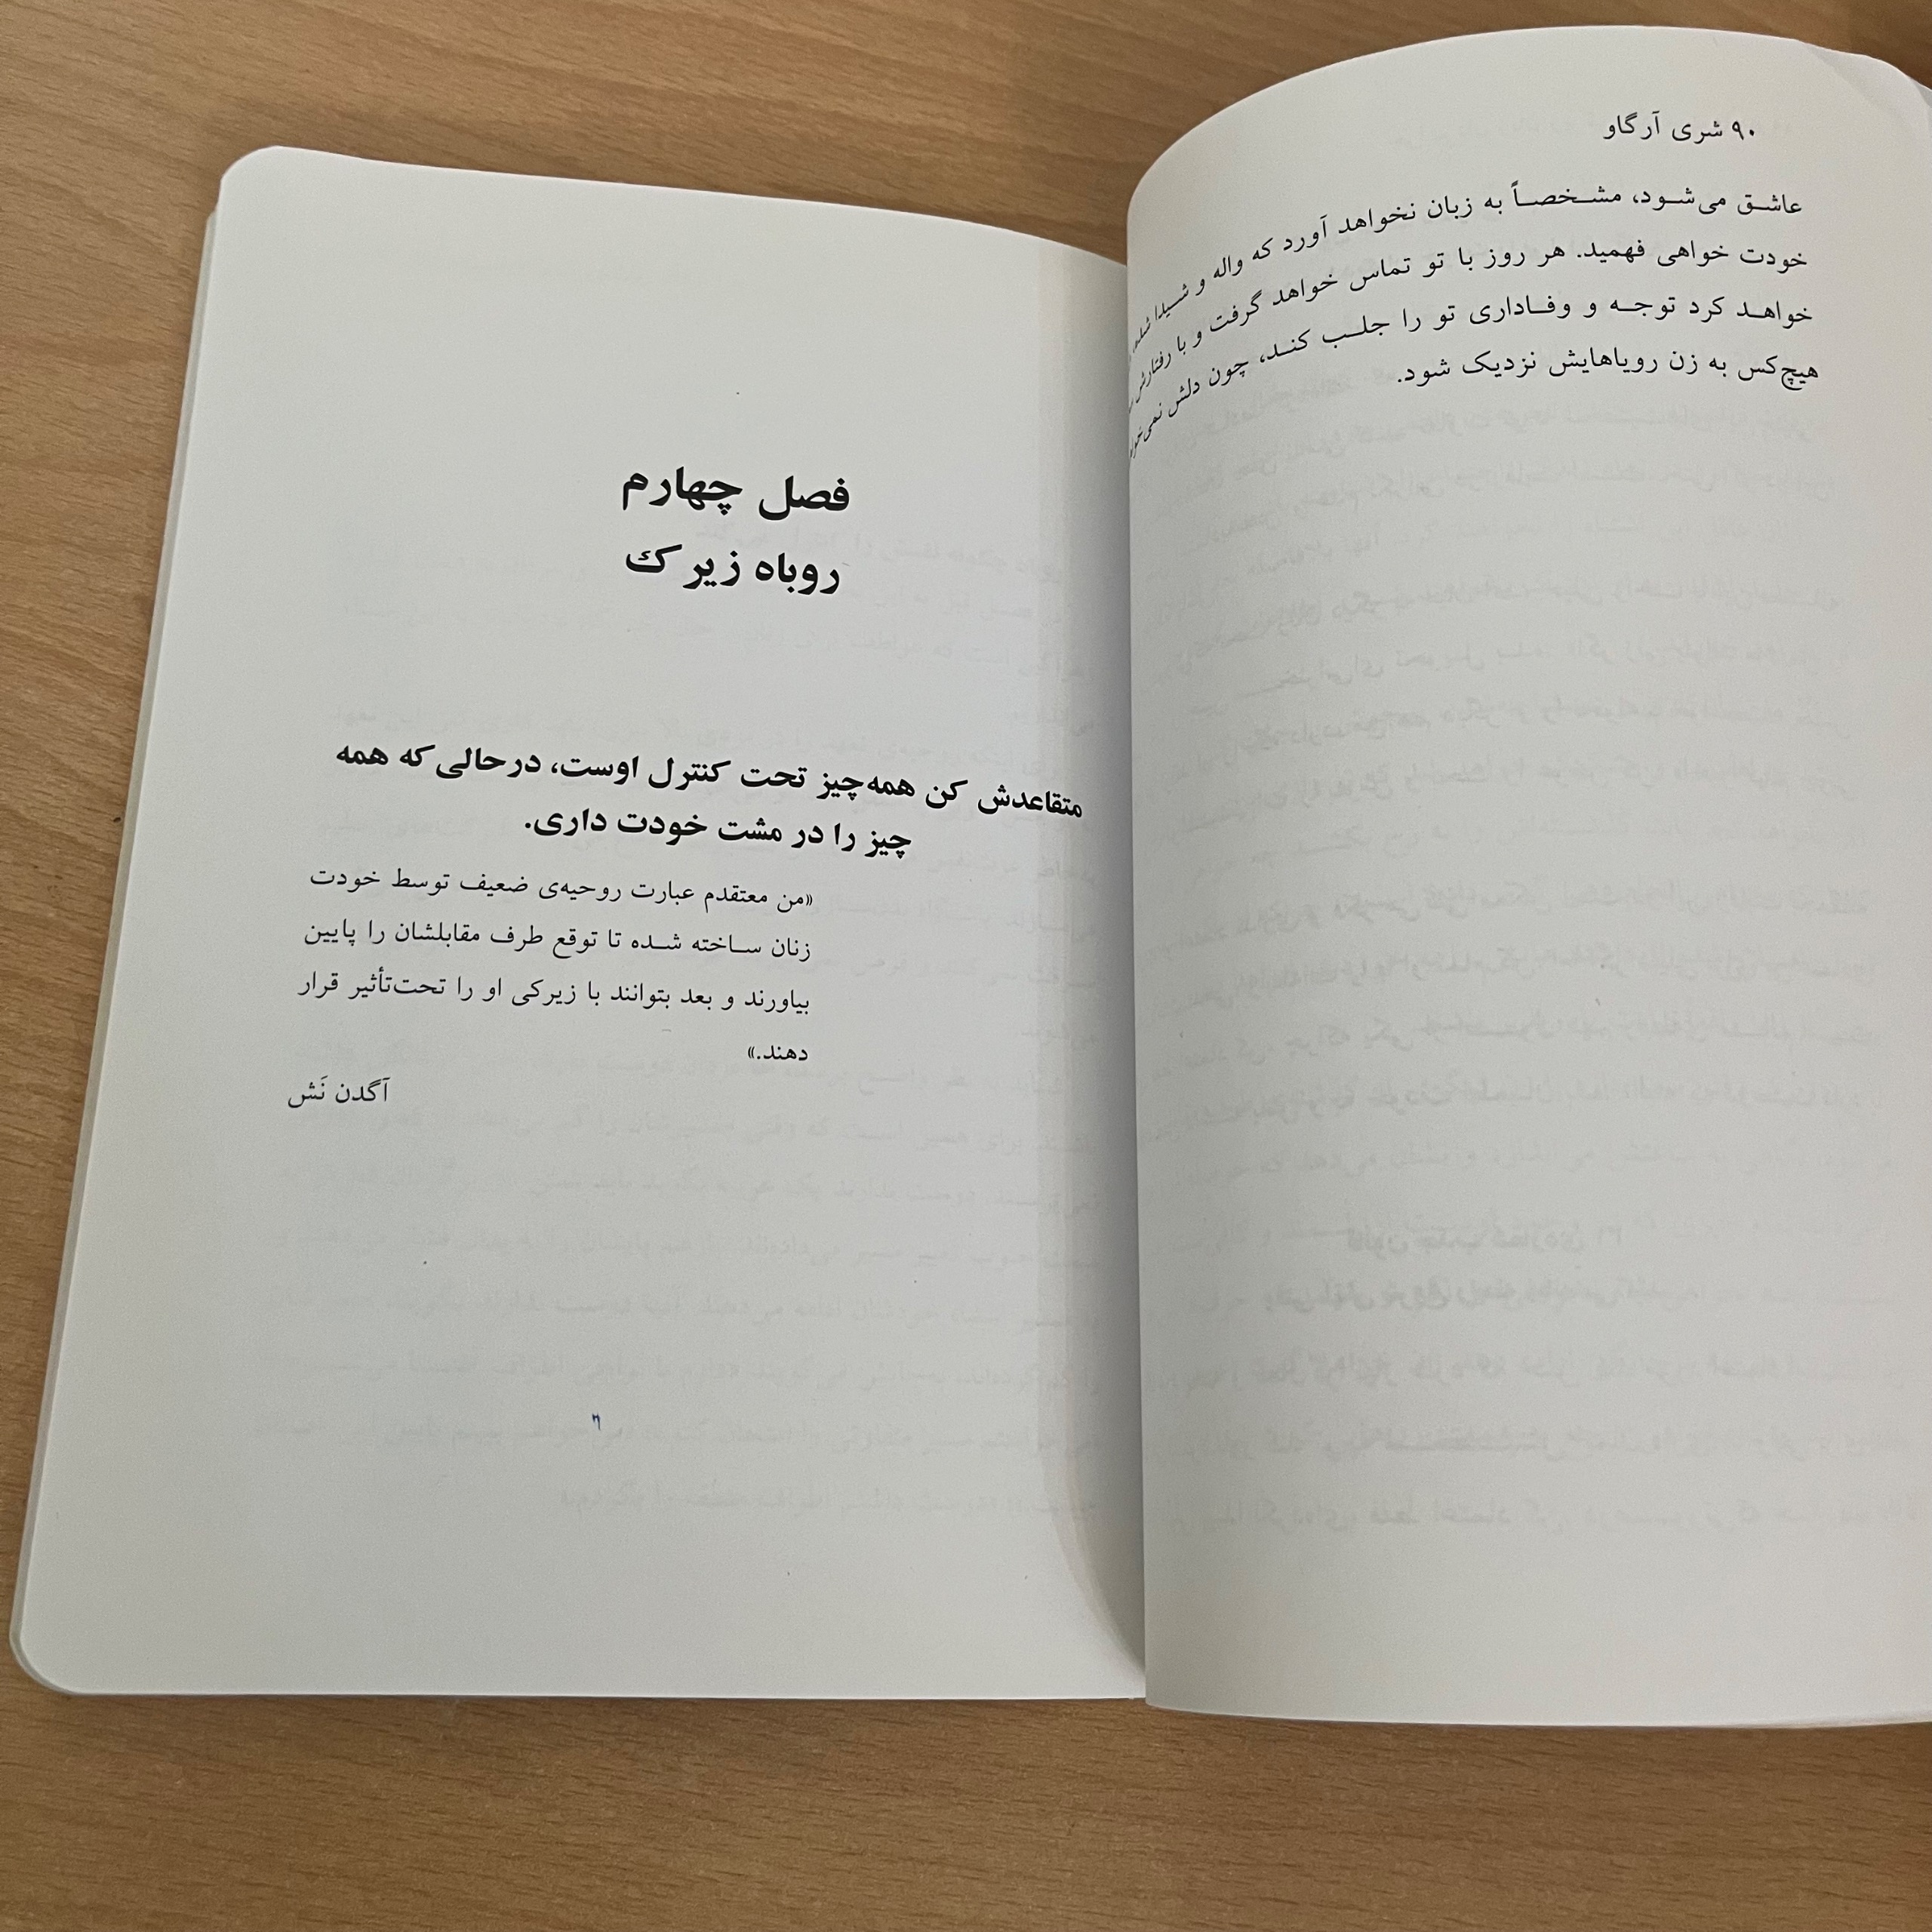 ۹۰ شری آرگاو
عاشق می‌شود، مشخصاً به زبان نخواهد آورد که واله و شیدا شده،
خودت خواهی فهمید. هر روز با تو تماس خواهد گرفت و با رفتارش
خواهد کرد توجه و وفاداری تو را جلب کند، چون دلش
هیچ‌کس به زن رویاهایش نزدیک شود.
فصل چهارم
روباه زیرک
متقاعدش کن همه‌چیز تحت کنترل اوست، درحالی که همه
چیز را در مشت خودت داری.
«من معتقدم عبارت روحیه‌ی ضعیف توسط خودت
زنان ساخته شده تا توقع طرف مقابلشان را پایین
بیاورند و بعد بتوانند با زیرکی او را تحت‌تأثیر قرار
دهند.»
آگدن نَش